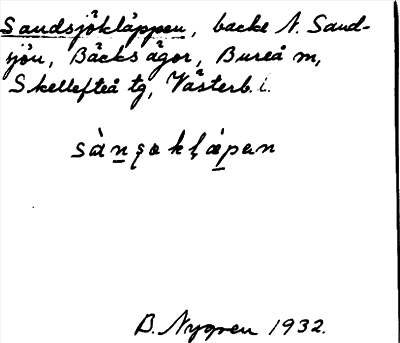 Sandsjökläppen, backe N. Sand-
sjön, Bäcks ägor, Bureå m,
Skellefteå tg, Västerb. l.
sàn̲ʂøkḷæ̀pən
B. Nygren 1932.